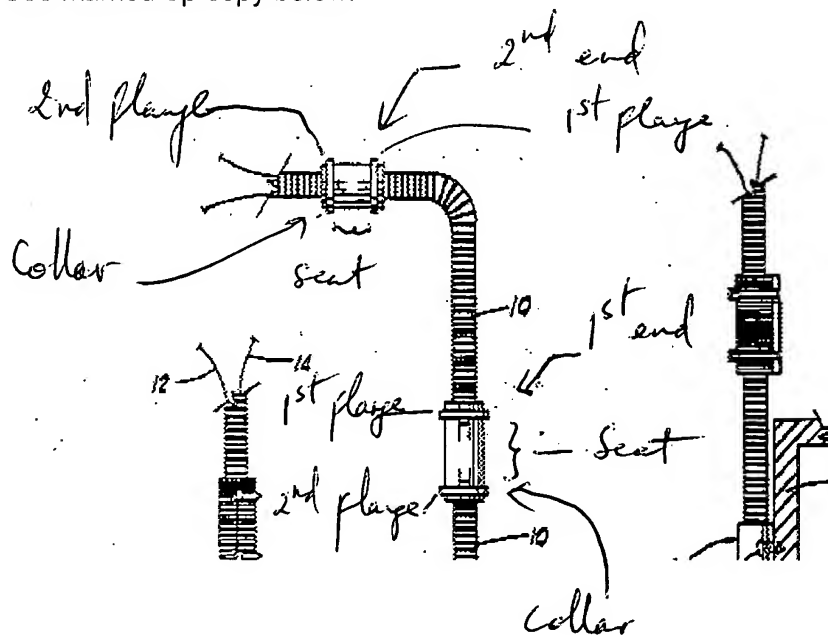 2nd end
2nd flange
1st flange
Collar
seat
10
1st end
12
14
1st flange
seat
2nd flange
10
Collar